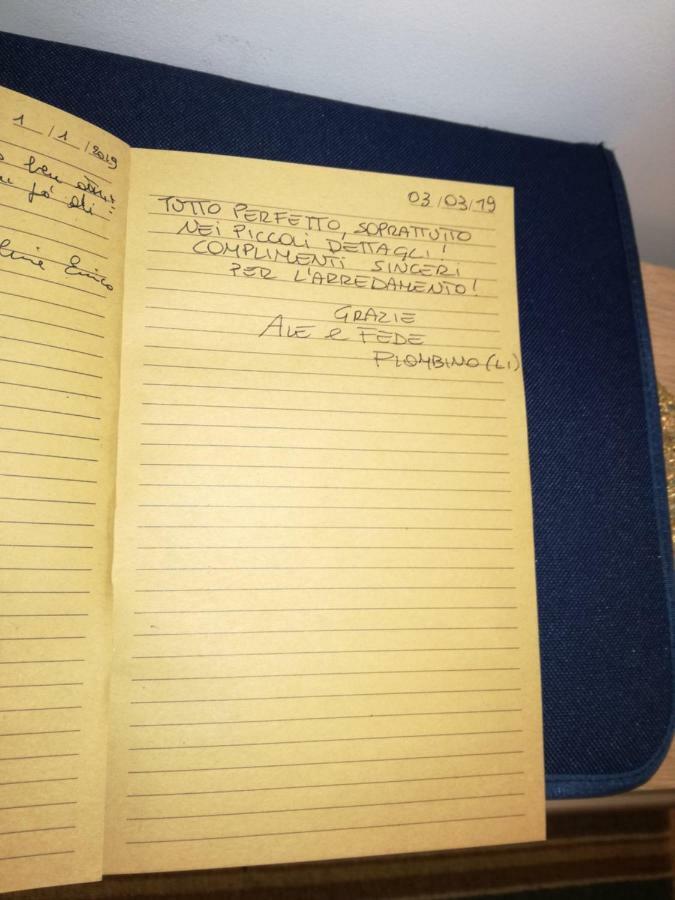 1/1/2019
ben
di
Enrico
03/03/19
TUTTO PERFETTO, SOPRATTUTTO
NEI PICCOLI DETTAGLI!
COMPLIMENTI SINCERI
PER L'ARREDAMENTO!
GRAZIE
ALE e FEDE
PIOMBINO (LI)